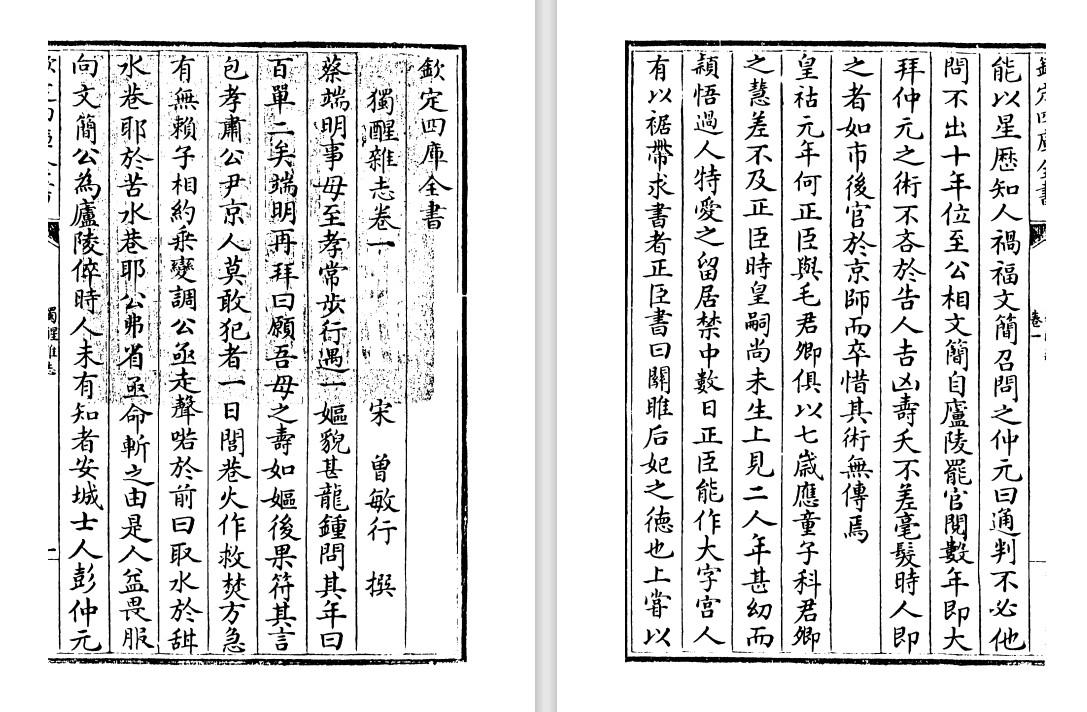 欽定四庫全書
獨醒雜志卷一　宋　曾敏行　撰
蔡端明事母至孝常歩行遇一嫗貌甚龍鍾問其年曰
百單二矣端明再拜曰願吾母之壽如嫗後果符其言
包孝肅公尹京人莫敢犯者一日閭巷火作救焚方急
有無賴子相約乗變調公亟走聲喏於前曰取水於甜
水巷耶於苦水巷耶公弗省亟命斬之由是人益畏服
向文簡公為廬陵倅時人未有知者安城士人彭仲元
獨醒雜志
卷一
能以星歴知人禍福文簡召問之仲元曰通判不必他
問不出十年位至公相文簡自廬陵罷官閱數年即大
拜仲元之術不吝於告人吉凶壽夭不差毫髮時人即
之者如市後官於京師而卒惜其術無傳焉
皇祜元年何正臣與毛君卿俱以七歳應童子科君卿
之慧差不及正臣時皇嗣尚未生上見二人年甚幼而
頴悟過人特愛之留居禁中數日正臣能作大字宫人
有以裾帶求書者正臣書曰關雎后妃之徳也上甞以